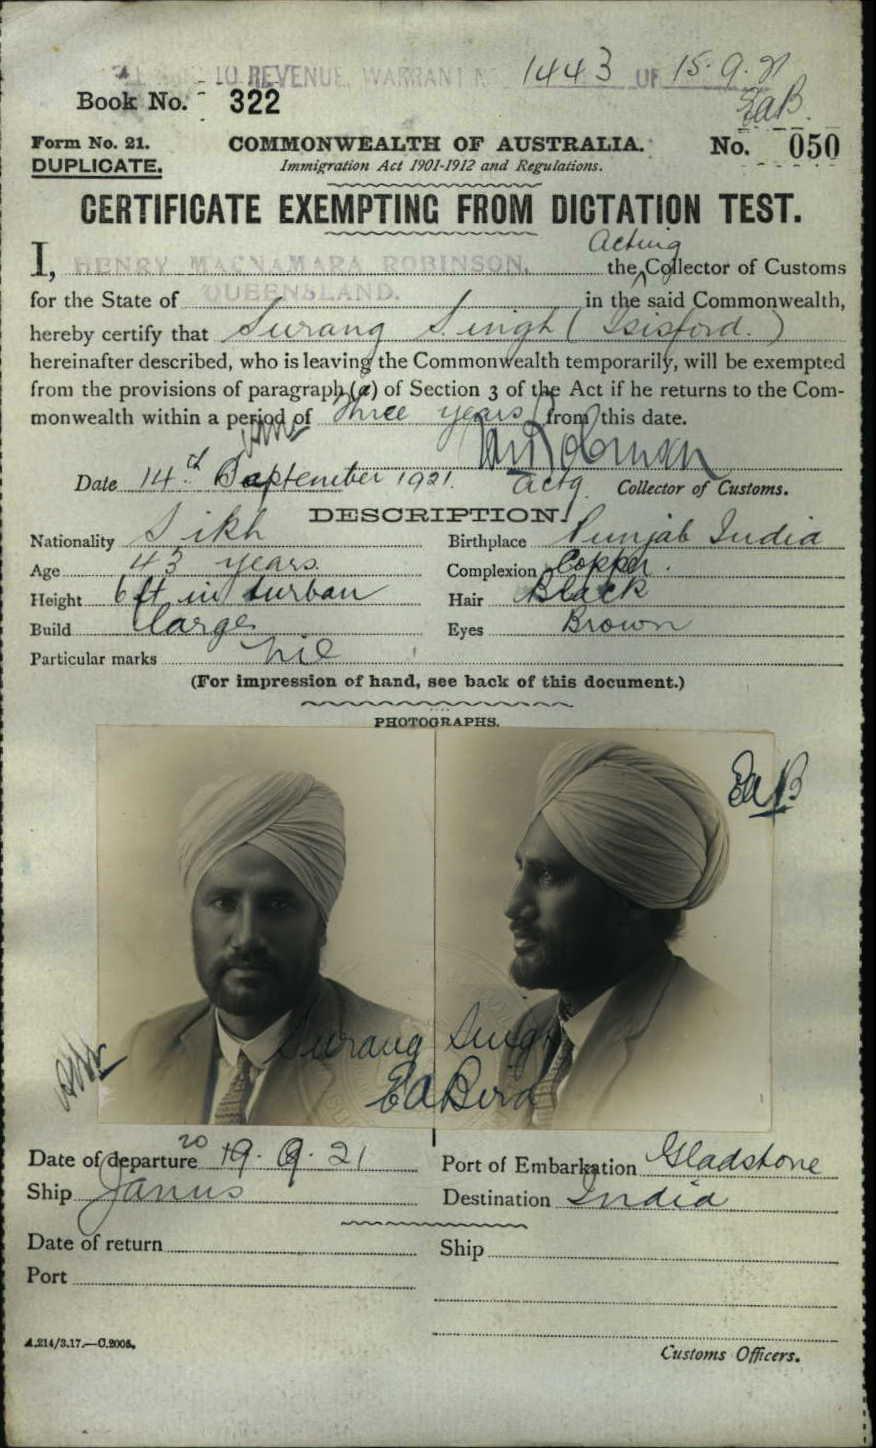 TO REVENUE, WARRANT No 1443 OF 15.9.21
EaB.
Book No. 322
Form No. 21. COMMONWEALTH OF AUSTRALIA. No. 050
DUPLICATE. Immigration Act 1901-1912 and Regulations.
CERTIFICATE EXEMPTING FROM DICTATION TEST.
Acting
I, HENRY MACNAMARA ROBINSON, the Collector of Customs
for the State of QUEENSLAND. in the said Commonwealth,
hereby certify that Surang Singh (Isisford.)
hereinafter described, who is leaving the Commonwealth temporarily, will be exempted
from the provisions of paragraph (a) of Section 3 of the Act if he returns to the Com-
monwealth within a period of three years from this date.
Date 14th September 1921. actg Collector of Customs.
DESCRIPTION.
Nationality Sikh Birthplace Punjab India
Age 43 years. Complexion Copper.
Height 6 ft in turban Hair Black
Build Large Eyes Brown
Particular marks nil
(For impression of hand, see back of this document.)
PHOTOGRAPHS.
EaB
Surang Singh
EABird
Date of departure 20 19.9.21 Port of Embarkation Gladstone
Ship Janus Destination India
Date of return Ship
Port
A.214/3.17.—C.2005.
Customs Officers.